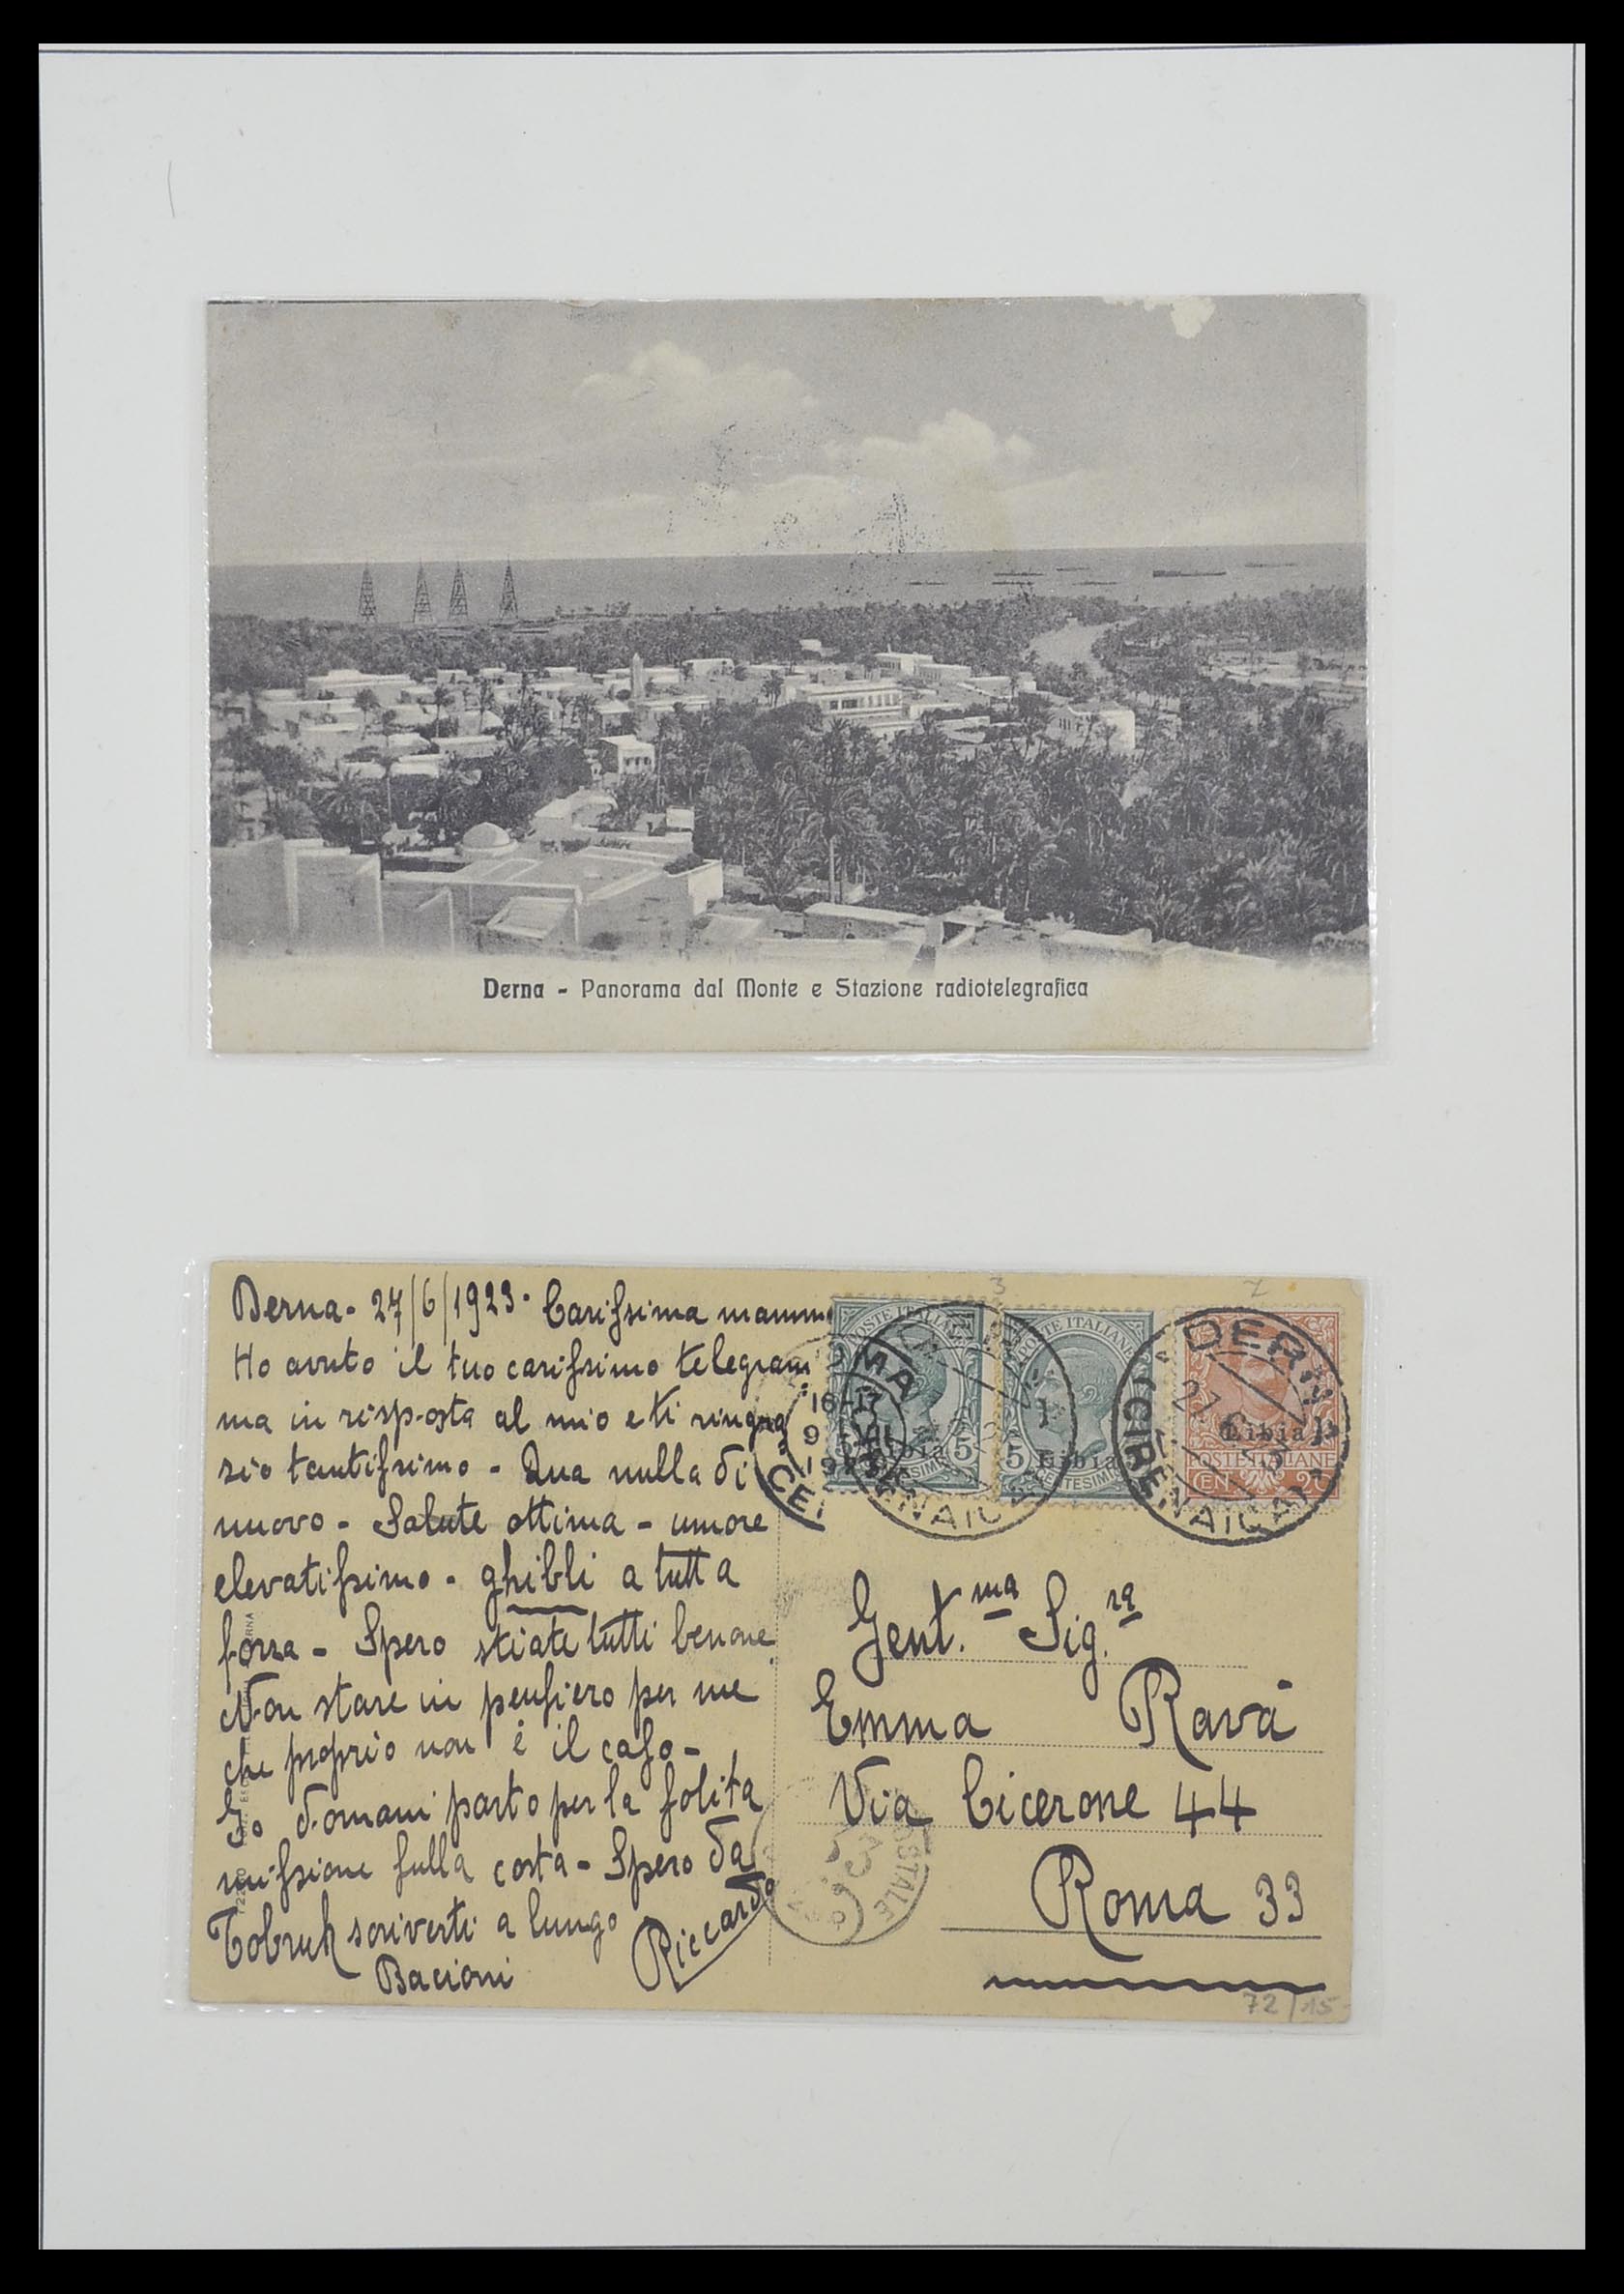 Derna - Panorama dal Monte e Stazione radiotelegrafica
3
7
Derna - 27/6/1923 - Carissima mamma
Ho avuto il tuo carissimo telegram
ma in risposta al mio e ti ringra
zio tantissimo - Qua nulla di
nuovo - Salute ottima - umore
elevatissimo - ghibli a tutta
forza - Spero stiate tutti benone.
Non stare in pensiero per me
che proprio non è il caso -
Io domani parto per la solita
missione sulla costa - Spero da
Tobruk scriverti a lungo
Bacioni
Riccardo
POSTE ITALIANE
5 Libia 5
CENTESIMI
POSTE ITALIANE
5 Libia
CENTESIMI
Libia
POSTE ITALIANE
CENT 20
ROMA
16-17
9 VII
1923
CE
DERNA
27.6.23
(CIRENAICA)
CIRENAICA
POSTALE
Gent.ma Sig.ra
Emma Ravà
Via Cicerone 44
Roma 33
72/15-